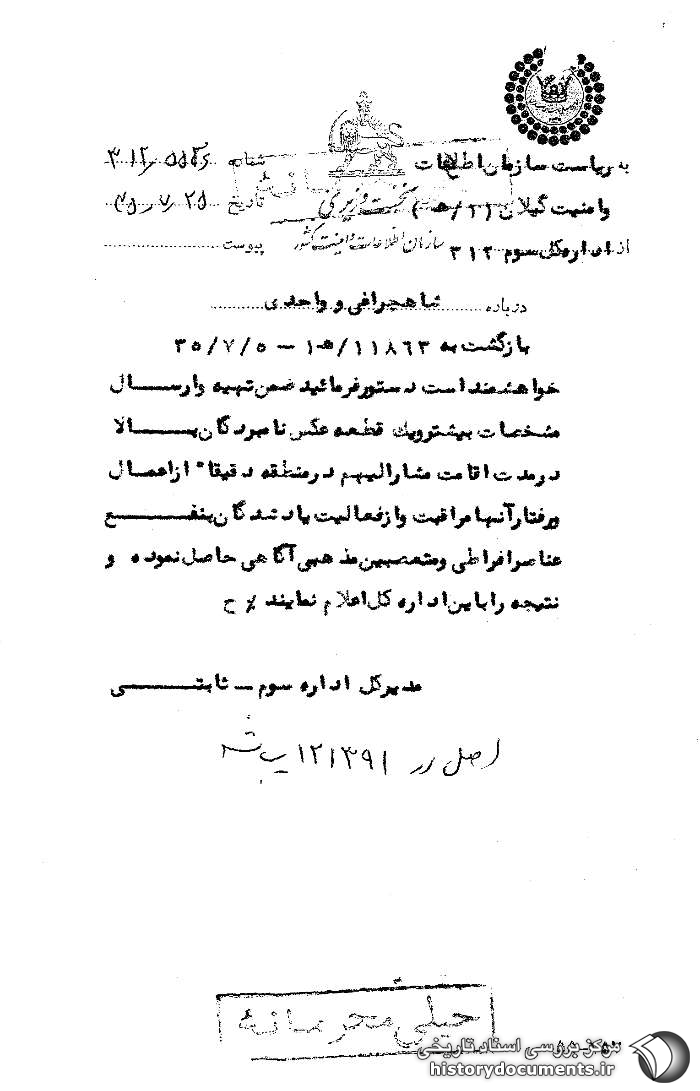 به ریاست سازمان اطلاعات
وامنیت گیلان (۱ﻫ/۲)
از اداره کل سوم ۳۱۲
نخست وزیری
سازمان اطلاعات و امنیت کشور
شماره
تاریخ ۲۵ ر ۷ ر
پیوست
درباره شاهچراغی و واحدی
بازگشت به ۱۱۸۶۳/۱ﻫ – ۳۵/۷/۵
خواهشمنداست دستورفرمائید ضمن تهیه وارسال
مشخصات بیشترویک قطعه عکس نامبردگان بالا
درمدت اقامت مشارالیهم درمنطقه دقیقا" ازاعمال
ورفتارآنهامراقبت وازفعالیت یادشدگان بنفع
عناصرافراطی ومتعصبین مذهبی آگاهی حاصل نموده و
نتیجه راباین اداره کل اعلام نمایند ٪ ح
مدیرکل اداره سوم – ثابتی
اصل در ۱۲۱۳۹۱
خیلی محرمانهٔ
مرکز بررسی اسناد تاریخی
historydocuments.ir